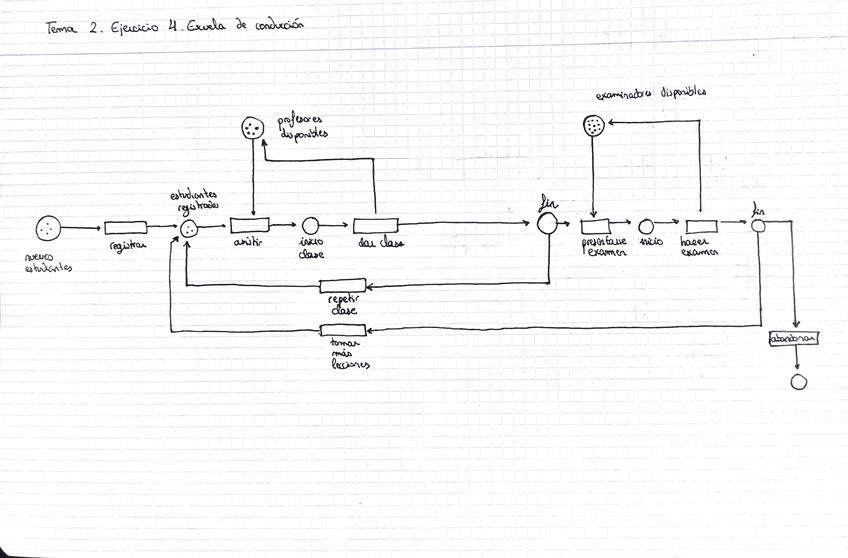 Tema 2. Ejercicio 4. Escuela de conducción
examinadores disponibles
profesores
disponibles
estudiantes
registrados
fin
fin
nuevos
estudiantes
registrar
asistir
inicio
clase
dar clase
presentarse
examen
inicio
hacer
examen
repetir
clase
tomar
más
lecciones
abandonar